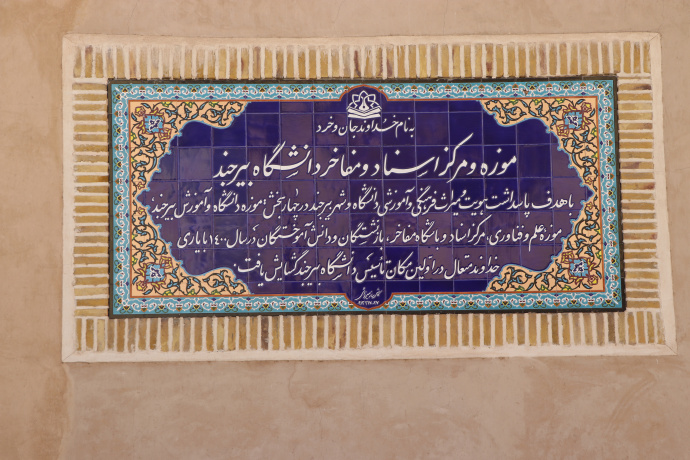 به نام خداوند جان و خرد
موزه و مرکز اسناد و مفاخر دانشگاه بیرجند
با هدف پاسداشت هویت و میراث فرهنگی و آموزشی دانشگاه و شهر بیرجند در چهار بخش: موزه دانشگاه و آموزش بیرجند
موزه علم و فناوری، مرکز اسناد و باشگاه مفاخر، بازنشستگان و دانش آموختگان در سال ۱۴۰۰ با یاری
خداوند متعال در اولین مکان تأسیس دانشگاه بیرجند گشایش یافت.